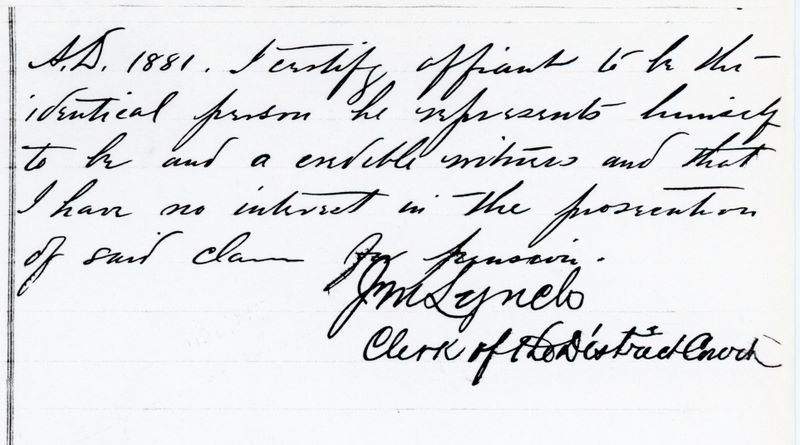 A.D. 1881. I certify affiant to be the
identical person he represents himself
to be and a credible witness and that
I have no interest in the prosecution
of said claim for pension.
J M Lynch
Clerk of the District Court